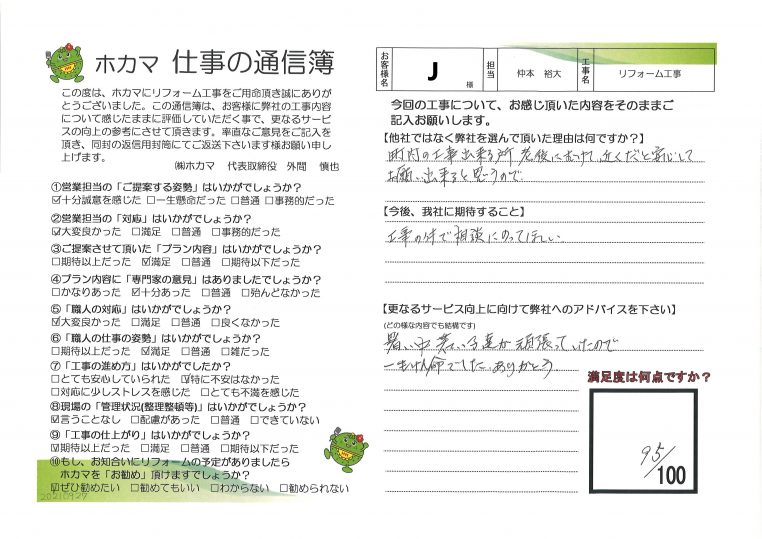 ホカマ 仕事の通信簿
この度は、ホカマにリフォーム工事をご用命頂き誠にありが
とうございました。この通信簿は、お客様に弊社の工事内容
について感じたままに評価していただく事で、更なるサービ
スの向上の参考にさせて頂きます。率直なご意見をご記入を
頂き、同封の返信用封筒にてご返送下さいます様お願い申し
上げます。
㈱ホカマ 代表取締役 外間 慎也
①営業担当の「ご提案する姿勢」はいかがでしょうか？
☑十分誠意を感じた □一生懸命だった □普通 □事務的だった
②営業担当の「対応」はいかがでしょうか？
☑大変良かった □満足 □普通 □事務的だった
③ご提案させて頂いた「プラン内容」はいかがでしょうか？
□期待以上だった ☑満足 □普通 □期待以下だった
④プラン内容に「専門家の意見」はありましたでしょうか？
□かなりあった ☑十分あった □普通 □殆んどなかった
⑤「職人の対応」はいかがでしょうか？
☑大変良かった □満足 □普通 □良くなかった
⑥「職人の仕事の姿勢」はいかがでしょうか？
□期待以上だった ☑満足 □普通 □雑だった
⑦「工事の進め方」はいかがでしたか？
□とても安心していられた ☑特に不安はなかった
□対応に少しストレスを感じた □とても不満を感じた
⑧現場の「管理状況(整理整頓等)」はいかがでしょうか？
☑言うことなし □配慮があった □普通 □できていない
⑨「工事の仕上がり」はいかがでしょうか？
☑期待以上だった □満足 □普通 □期待以下だった
⑩もし、お知合いにリフォームの予定がありましたら
ホカマを「お勧め」頂けますでしょうか？
☑ぜひ勧めたい □勧めてもいい □わからない □勧められない
20210927
お客様名 J 様 担当 仲本 裕大 工事名 リフォーム工事
今回の工事について、お感じ頂いた内容をそのままご
記入お願いします。
【他社ではなく弊社を選んで頂いた理由は何ですか？】
町内の工事出来る所 老後にむけて 近くだと安心して
お願い出来ると思うので
【今後、我社に期待すること】
工事の件で相談にのってほしい
【更なるサービス向上に向けて弊社へのアドバイスを下さい】
(どの様な内容でも結構です)
暑い中 若い子達が頑張っていたので
一生けん命でした。ありがとう
満足度は何点ですか？
95/100